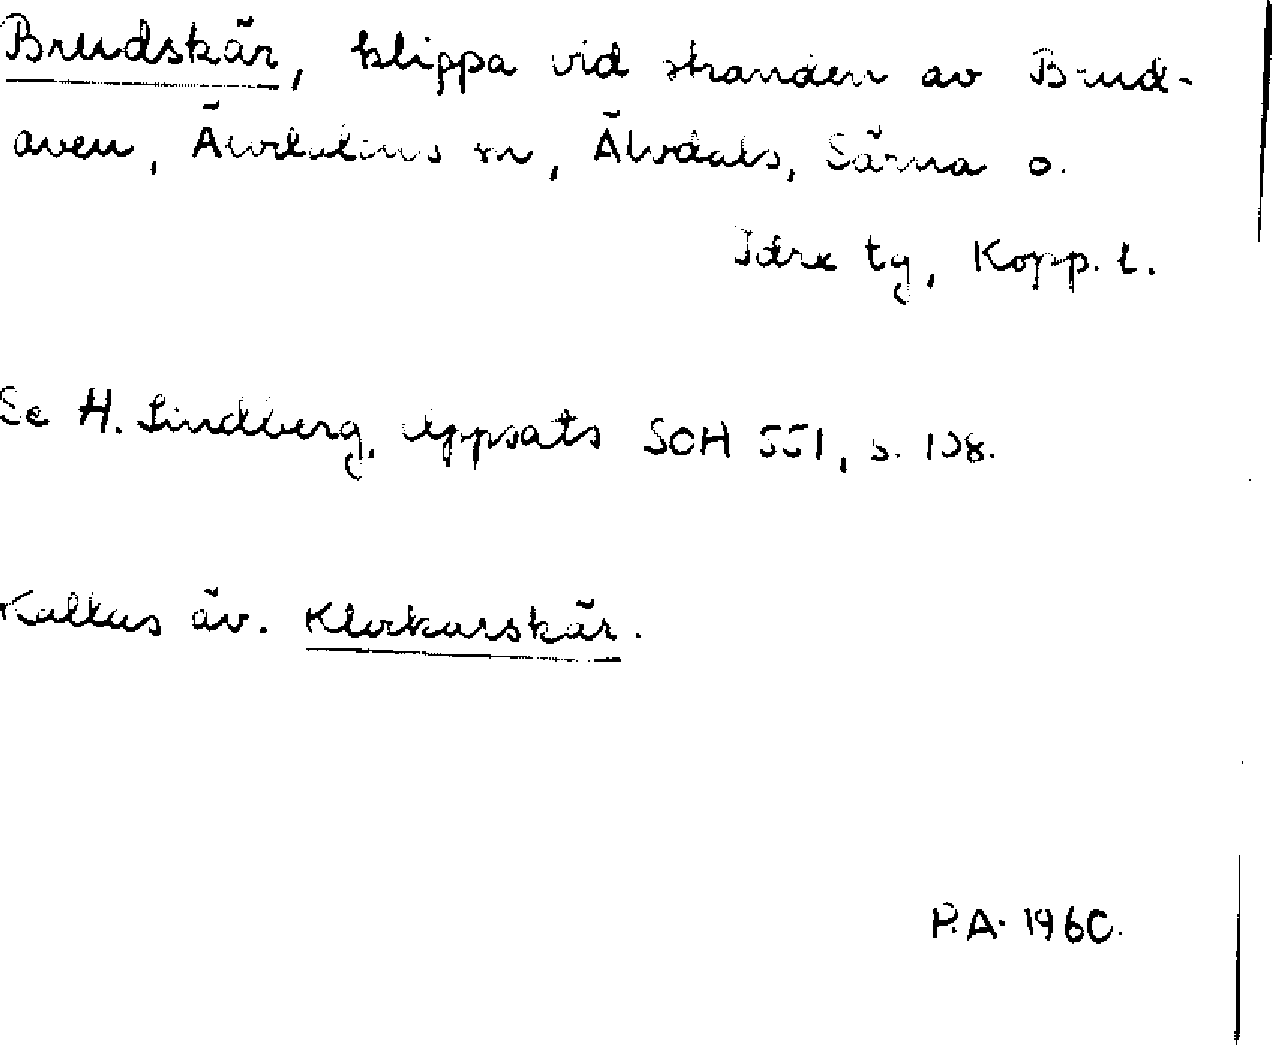 Brudskär, klippa vid stranden av Brud-
aven, Ävdalens sn, Älvdals, Särna o.
Idre tg, Kopp. l.
Se H. Lindberg, Uppsats SOH 551, s. 138.
Kallas äv. Klockarskär.
P.A. 1960.